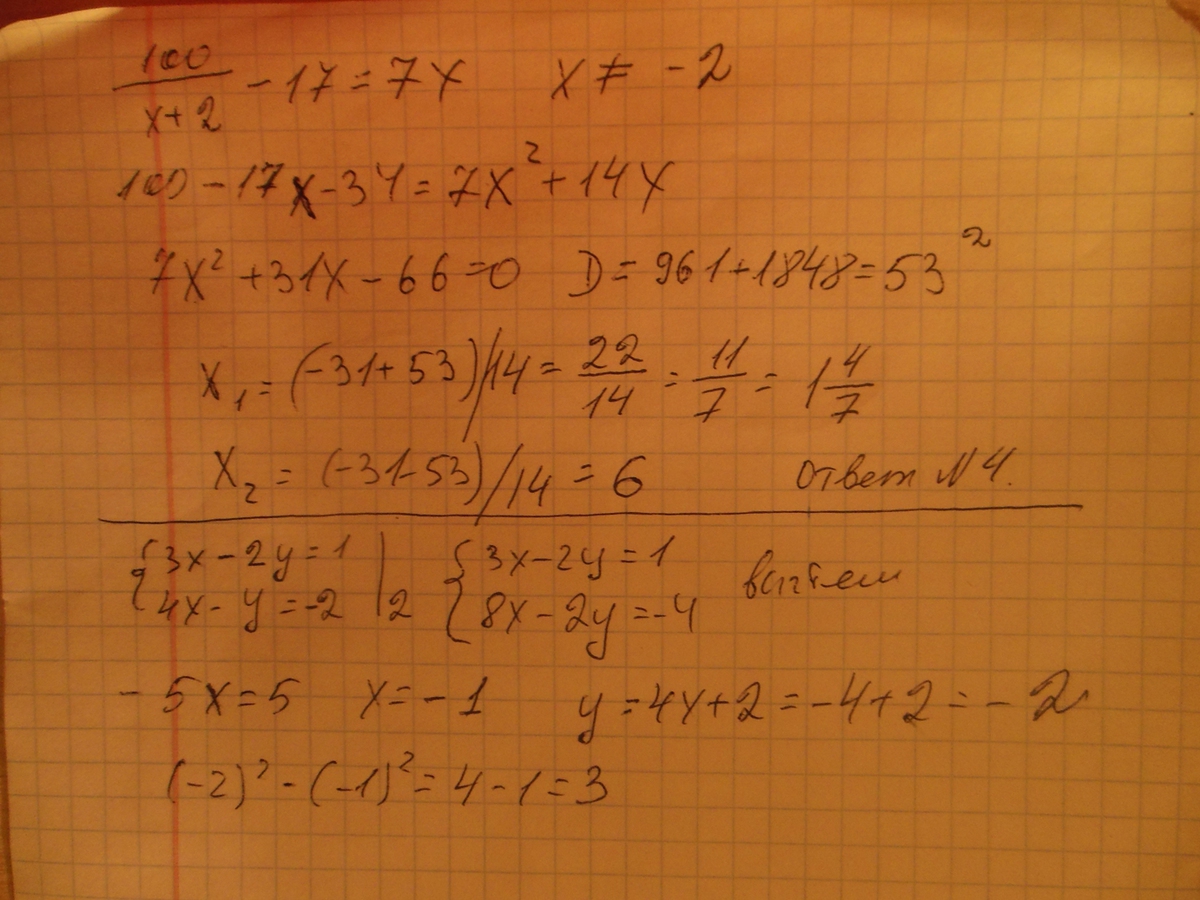 100/(x+2) - 17 = 7x   x ≠ -2
100 - 17x - 34 = 7x² + 14x
7x² + 31x - 66 = 0   D = 961 + 1848 = 53²
x₁ = (-31 + 53)/14 = 22/14 = 11/7 = 1 4/7
x₂ = (-31-53)/14 = 6   ответ N4.
{3x - 2y = 1 |   {3x - 2y = 1   вычтем
{4x - y = -2 | 2   {8x - 2y = -4
- 5x = 5   x = -1   y = 4x + 2 = -4 + 2 = -2
(-2)² - (-1)² = 4 - 1 = 3